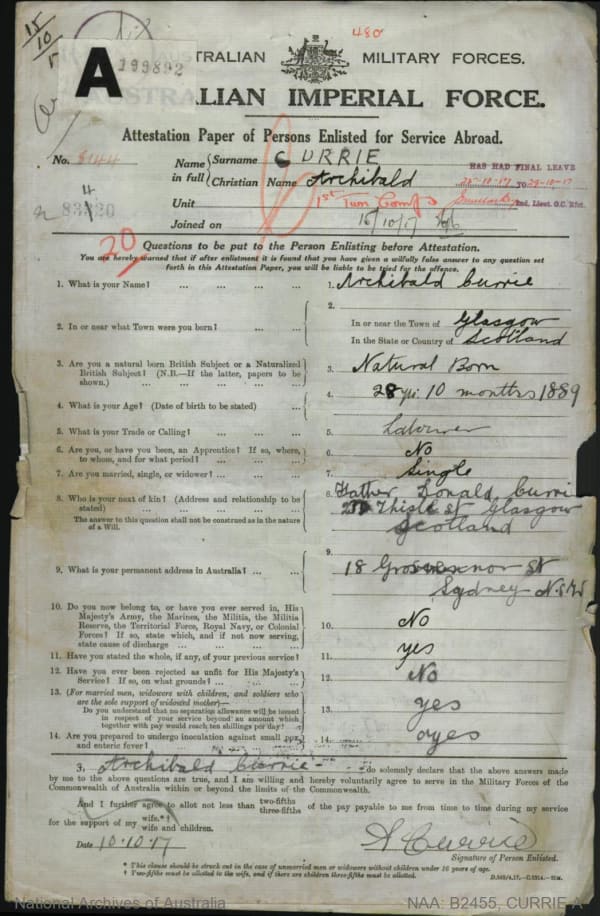 15
10
480
A 199892
TRALIAN MILITARY FORCES.
LIAN IMPERIAL FORCE.
Attestation Paper of Persons Enlisted for Service Abroad.
No. 8144
Name in full { Surname CURRIE
Christian Name Archibald
HAS HAD FINAL LEAVE
25-10-17 TO 29-10-17
2nd. Lieut. O.C. Rfct.
Unit 1st Tun Comps
Joined on 15/10/17
83820
20
Questions to be put to the Person Enlisting before Attestation.
You are hereby warned that if after enlistment it is found that you have given a wilfully false answer to any question set
forth in this Attestation Paper, you will be liable to be tried for the offence.
1. What is your Name? ... ... ... ... 1. Archibald Currie
2. In or near what Town were you born? ... ... 2. In or near the Town of Glasgow
In the State or Country of Scotland
3. Are you a natural born British Subject or a Naturalized
British Subject? (N.B.—If the latter, papers to be
shown.) ... ... ... ... 3. Natural Born
4. What is your Age? (Date of birth to be stated) ... 28 yrs 10 months 1889
5. What is your Trade or Calling? ... ... ... 5. Labourer
6. Are you, or have you been, an Apprentice? If so, where,
to whom, and for what period? ... ... ... 6. No
7. Are you married, single, or widower? ... ... 7. Single
8. Who is your next of kin? (Address and relationship to be
stated) ... ... ... ... 8. Father Donald Curri
Thistle St Glasgow
Scotland
The answer to this question shall not be construed as in the nature
of a Will.
9. What is your permanent address in Australia? ... ... 9. 18 Grosvenor St
Sydney N.S.W
10. Do you now belong to, or have you ever served in, His
Majesty's Army, the Marines, the Militia, the Militia
Reserve, the Territorial Force, Royal Navy, or Colonial
Forces? If so, state which, and if not now serving,
state cause of discharge ... ... ... 10. No
11. Have you stated the whole, if any, of your previous service? 11. yes
12. Have you ever been rejected as unfit for His Majesty's
Service? If so, on what grounds? ... ... 12. No
13. (For married men, widowers with children, and soldiers who
are the sole support of widowed mother)—
Do you understand that no separation allowance will be issued
in respect of your service beyond an amount which
together with pay would reach ten shillings per day? 13. yes
14. Are you prepared to undergo inoculation against small pox
and enteric fever? 14. yes
I, Archibald Currie do solemnly declare that the above answers made
by me to the above questions are true, and I am willing and hereby voluntarily agree to serve in the Military Forces of the
Commonwealth of Australia within or beyond the limits of the Commonwealth.
And I further agree to allot not less than two-fifths three-fifths of the pay payable to me from time to time during my service
for the support of my wife.*† wife and children.
Date 10.10.17
A Currie
Signature of Person Enlisted.
* This clause should be struck out in the case of unmarried men or widowers without children under 16 years of age.
† Two-fifths must be allotted to the wife, and if there are children three-fifths must be allotted.
National Archives of Australia
NAA: B2455, CURRIE A